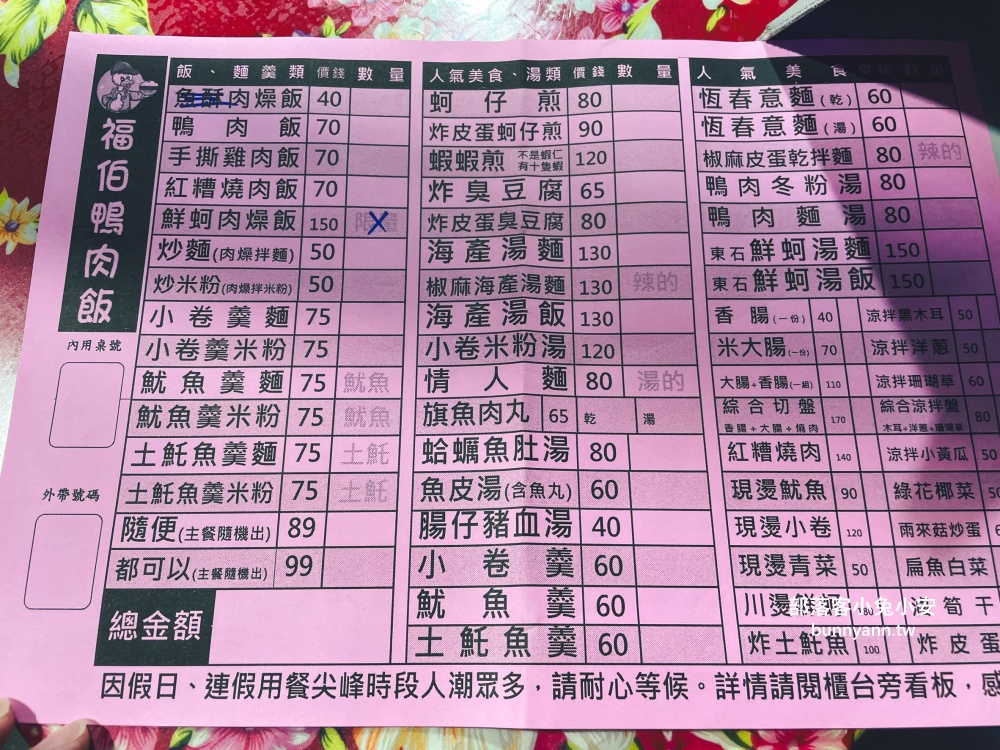 福伯鴨肉飯
內用桌號
外帶號碼
飯、麵羹類 價錢 數量
魚酥肉燥飯 40
鴨肉飯 70
手撕雞肉飯 70
紅糟燒肉飯 70
鮮蚵肉燥飯 150 限量 X
炒麵(肉燥拌麵) 50
炒米粉(肉燥拌米粉) 50
小卷羹麵 75
小卷羹米粉 75
魷魚羹麵 75 魷魚
魷魚羹米粉 75 魷魚
土魠魚羹麵 75 土魠
土魠魚羹米粉 75 土魠
隨便(主餐隨機出) 89
都可以(主餐隨機出) 99
總金額
人氣美食、湯類 價錢 數量
蚵仔煎 80
炸皮蛋蚵仔煎 90
蝦蝦煎 不是蝦仁 有十隻蝦 120
炸臭豆腐 65
炸皮蛋臭豆腐 80
海產湯麵 130
椒麻海產湯麵 130 辣的
海產湯飯 130
小卷米粉湯 120
情人麵 80 湯的
旗魚肉丸 65 乾 湯
蛤蠣魚肚湯 80
魚皮湯(含魚丸) 60
腸仔豬血湯 40
小卷羹 60
魷魚羹 60
土魠魚羹 60
人氣美食 價錢 數量
恆春意麵(乾) 60
恆春意麵(湯) 60
椒麻皮蛋乾拌麵 80 辣的
鴨肉冬粉湯 80
鴨肉麵湯 80
東石鮮蚵湯麵 150
東石鮮蚵湯飯 150
香腸(一份) 40 涼拌黑木耳 50
米大腸(一份) 70 涼拌洋蔥 50
大腸+香腸(一組) 110 涼拌珊瑚草 60
綜合切盤 香腸+大腸+燒肉 170 綜合涼拌盤 木耳+洋蔥+珊瑚草 80
紅糟燒肉 140 涼拌小黃瓜 50
現燙魷魚 90 綠花椰菜 50
現燙小卷 120 雨來菇炒蛋
現燙青菜 50 扁魚白菜
川燙鮮蚵 筍干
炸土魠魚 100 炸皮蛋
部落客小兔小安
bunnyann.tw
因假日、連假用餐尖峰時段人潮眾多，請耐心等候。詳情請閱櫃台旁看板，感